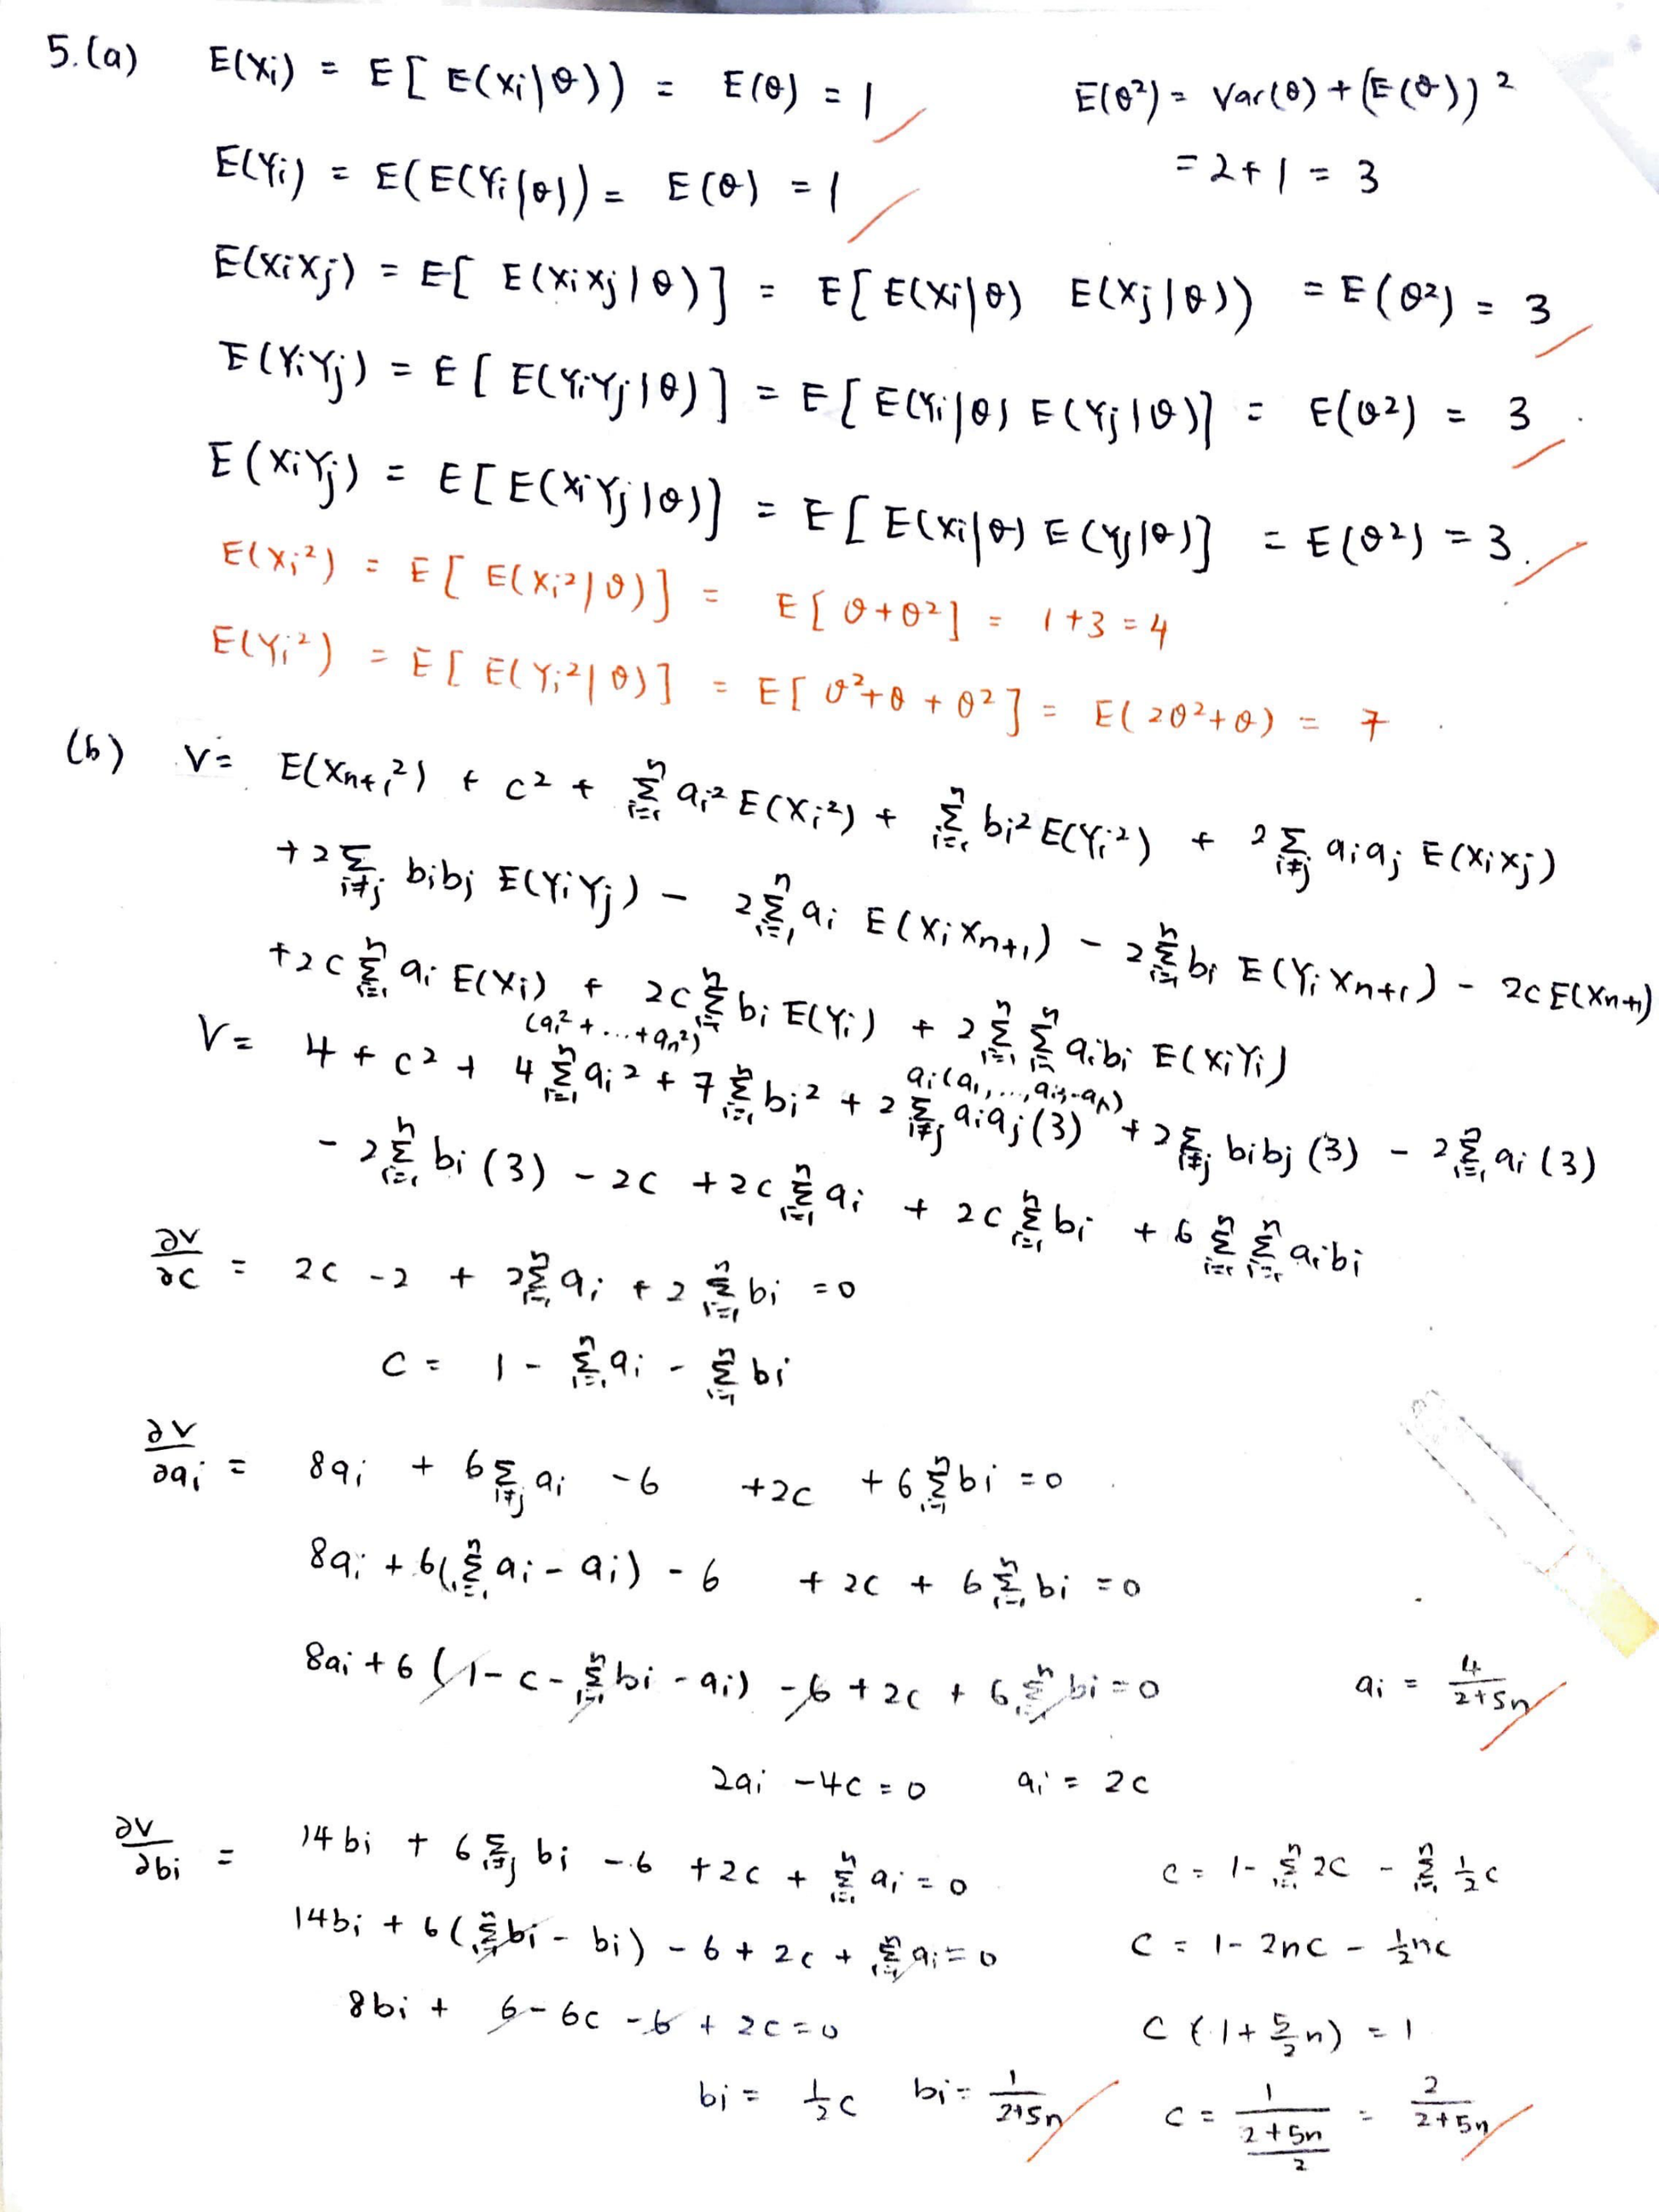 5.(a) E(Xi) = E[ E(Xi|θ)) = E(θ) = 1
E(θ²) = Var(θ) + (E(θ))²
= 2+1 = 3
E(Yi) = E(E(Yi|θ)) = E(θ) = 1
E(XiXj) = E[ E(XiXj|θ)] = E[E(Xi|θ) E(Xj|θ)) = E(θ²) = 3
E(YiYj) = E[ E(YiYj|θ)] = E[E(Yi|θ) E(Yj|θ)] = E(θ²) = 3.
E(XiYj) = E[E(XiYj|θ)] = E[E(Xi|θ) E(Yj|θ)] = E(θ²) = 3.
E(Xi²) = E[ E(Xi²|θ)] = E[θ+θ²] = 1+3 = 4
E(Yi²) = E[ E(Yi²|θ)] = E[θ²+θ+θ²] = E(2θ²+θ) = 7
(b) V = E(Xn+1²) + c² + Σ_{i=1}^n ai² E(Xi²) + Σ_{i=1}^n bi² E(Yi²) + 2Σ_{i≠j} aiaj E(XiXj)
+2Σ_{i≠j} bibj E(YiYj) - 2Σ_{i=1}^n ai E(XiXn+1) - 2Σ_{i=1}^n bi E(YiXn+1) - 2cE(Xn+1)
+2cΣ_{i=1}^n ai E(Xi) + 2cΣ_{i=1}^n bi E(Yi) + 2Σ_{i=1}^n Σ_{i=1}^n aibi E(XiYi)
(ai²+...+an²)
ai(a1,...,
V = 4 + c² + 4Σ_{i=1}^n ai² + 7Σ_{i=1}^n bi² + 2Σ_{i≠j} aiaj(3) + 2Σ_{i≠j} bibj(3) - 2Σ_{i=1}^n ai(3)
- 2Σ_{i=1}^n bi(3) - 2c + 2cΣ_{i=1}^n ai + 2cΣ_{i=1}^n bi + 6Σ_{i=1}^n Σ_{i=1}^n aibi
∂V/∂c = 2c - 2 + 2Σ_{i=1}^n ai + 2Σ_{i=1}^n bi = 0
c = 1 - Σ_{i=1}^n ai - Σ_{i=1}^n bi
∂V/∂ai = 8ai + 6Σ_{i≠j} ai - 6 + 2c + 6Σ_{i=1}^n bi = 0
8ai + 6(Σ_{i=1}^n ai - ai) - 6 + 2c + 6Σ_{i=1}^n bi = 0
8ai + 6(1 - c - Σ_{i=1}^n bi - ai) - 6 + 2c + 6Σ_{i=1}^n bi = 0
ai = 4/(2+5n)
2ai - 4c = 0 ai = 2c
∂V/∂bi = 14bi + 6Σ_{i≠j} bi - 6 + 2c + Σ_{i=1}^n ai = 0
14bi + 6(Σ_{i=1}^n bi - bi) - 6 + 2c + Σ_{i=1}^n ai = 0
8bi + 6 - 6c - 6 + 2c = 0
bi = ½c bi = 1/(2+5n)
c = 1 - Σ_{i=1}^n 2c - Σ_{i=1}^n ½c
c = 1 - 2nc - ½nc
c(1 + 5/2 n) = 1
c = 1/((2+5n)/2) = 2/(2+5n)